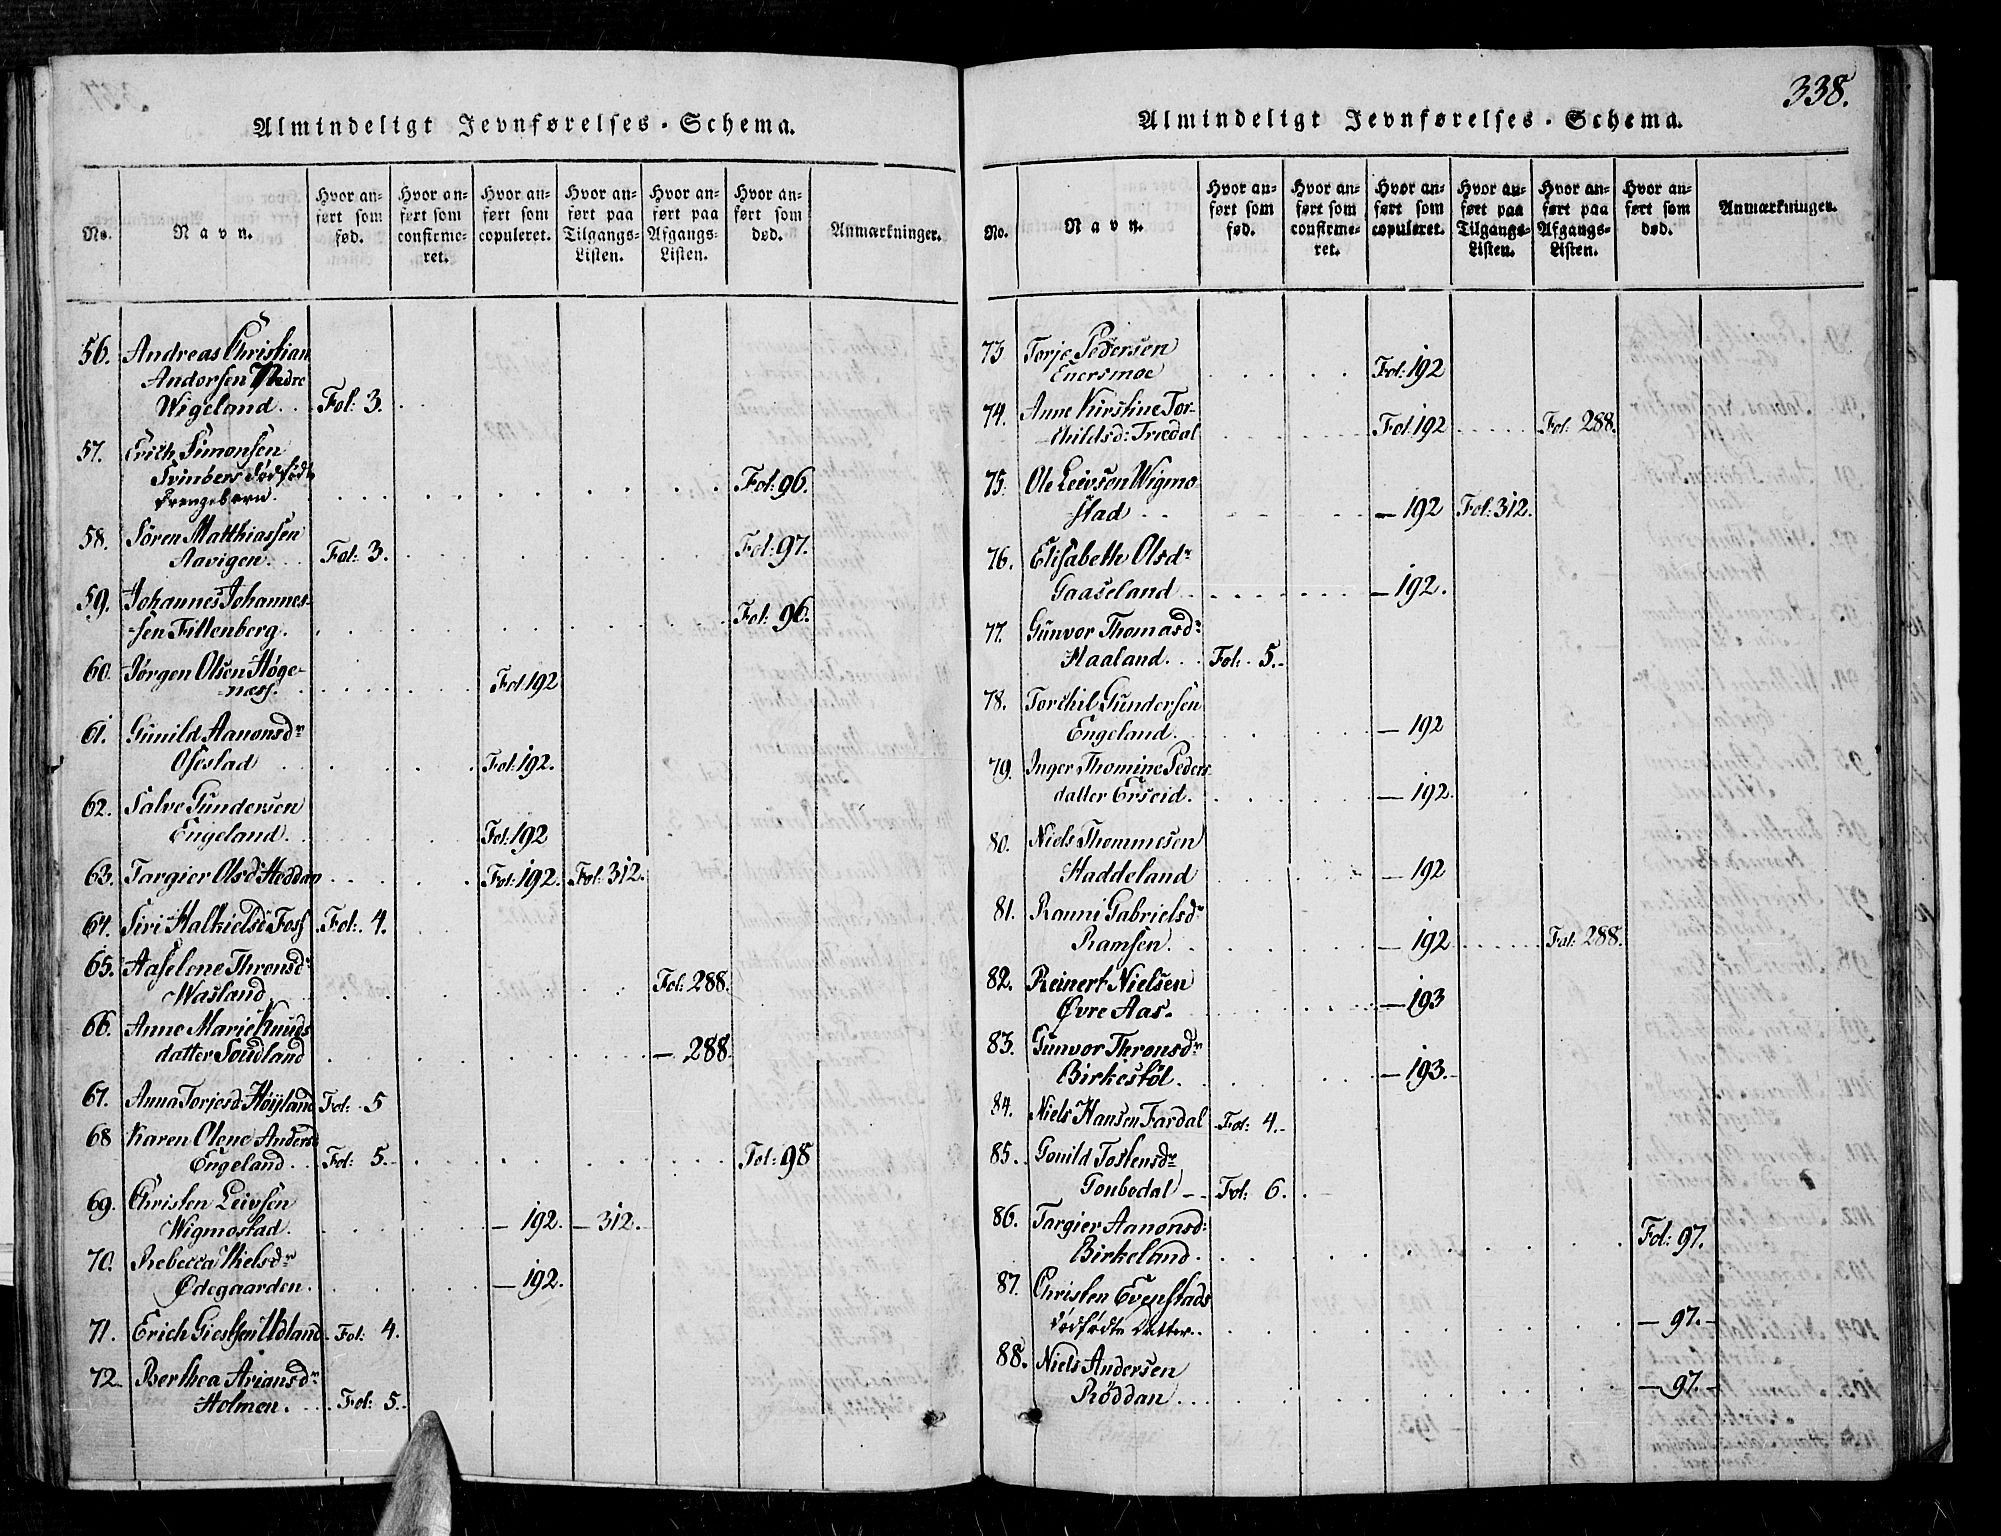 338.
Almindeligt Jevnførelses-Schema.
No.
Navn.
Hvor anført som fød.
Hvor anført som confirmeret.
Hvor anført som copuleret.
Hvor anført paa Tilgangs-Listen.
Hvor anført paa Afgangs-Listen.
Hvor anført som død.
Anmærkninger.
56. Andreas Christian
Andorsen Nedre
Wigeland . . . Fol: 3.
57. Erich Simonsen
Svinbers Dødfødt
Drengebarn. Fol: 96.
58. Søren Matthiassen
Aavigen. Fol: 3. Fol: 97.
59. Johannes Johannes-
sen Fittenberg. Fol: 96.
60. Jørgen Olsen Høge-
næss. Fol 192
61. Gunild Aanonsdr
Osestad Fol: 192.
62. Salve Gundersen
Engeland. Fol: 192
63. Targier Olsd Heddan Fol: 192. Fol: 312.
64. Siri Halkielsd Foss Fol: 4.
65. Aaselene Thronsdr
Wasland Fol: 288.
66. Anne Marie Knuds
datter Soudland — 288.
67. Anna Torjesd Høyland Fol: 5
68 Karen Olene Andersd
Engeland. Fol: 5. Fol: 98
69. Christen Leivsen
Wigmostad. — 192. — 312.
70. Rebecca Nielsdr
Ødegaarden. — 192.
71. Erich Giertsen Udland Fol: 4.
72 Berthea Ariansdr
Holmen. Fol: 5.
Almindeligt Jevnførelses-Schema.
No.
Navn.
Hvor anført som fød.
Hvor anført som confirmeret.
Hvor anført som copuleret.
Hvor anført paa Tilgangs-Listen.
Hvor anført paa Afgangs-Listen.
Hvor anført som død.
Anmærkninger.
73 Torje Pedersen
Enersmoe Fol: 192
74. Anne Kirstine Tor-
childsd: Trædal Fol: 192 Fol: 288.
75. Ole Leivsen Wigmo
stad — 192 Fol: 312.
76. Elisabeth Olsdr
Gaaseland — 192.
77. Gunvor Thomasdr
Haaland. Fol: 5.
78. Torchil Gundersen
Engeland. — 192
79. Inger Thomine Peders
datter Erseid. — 192.
80. Niels Thommesen
Haddeland — 192
81. Ranni Gabrielsdr
Ramsen. — 192 Fol: 288.
82. Reinert Nielsen
Øvre Aas. — 193
83. Gunvor Thronsdr
Birkestøl. — 193.
84. Niels Hansen Fardal Fol: 4.
85. Gonild Tostensdr
Gonbedal Fol: 6.
86. Targier Aanonsd:
Birkeland. Fol: 97.
87. Christen Evenstads
dødfødte Datter. — 97. —
88. Niels Andersen
Røddan — 97. —